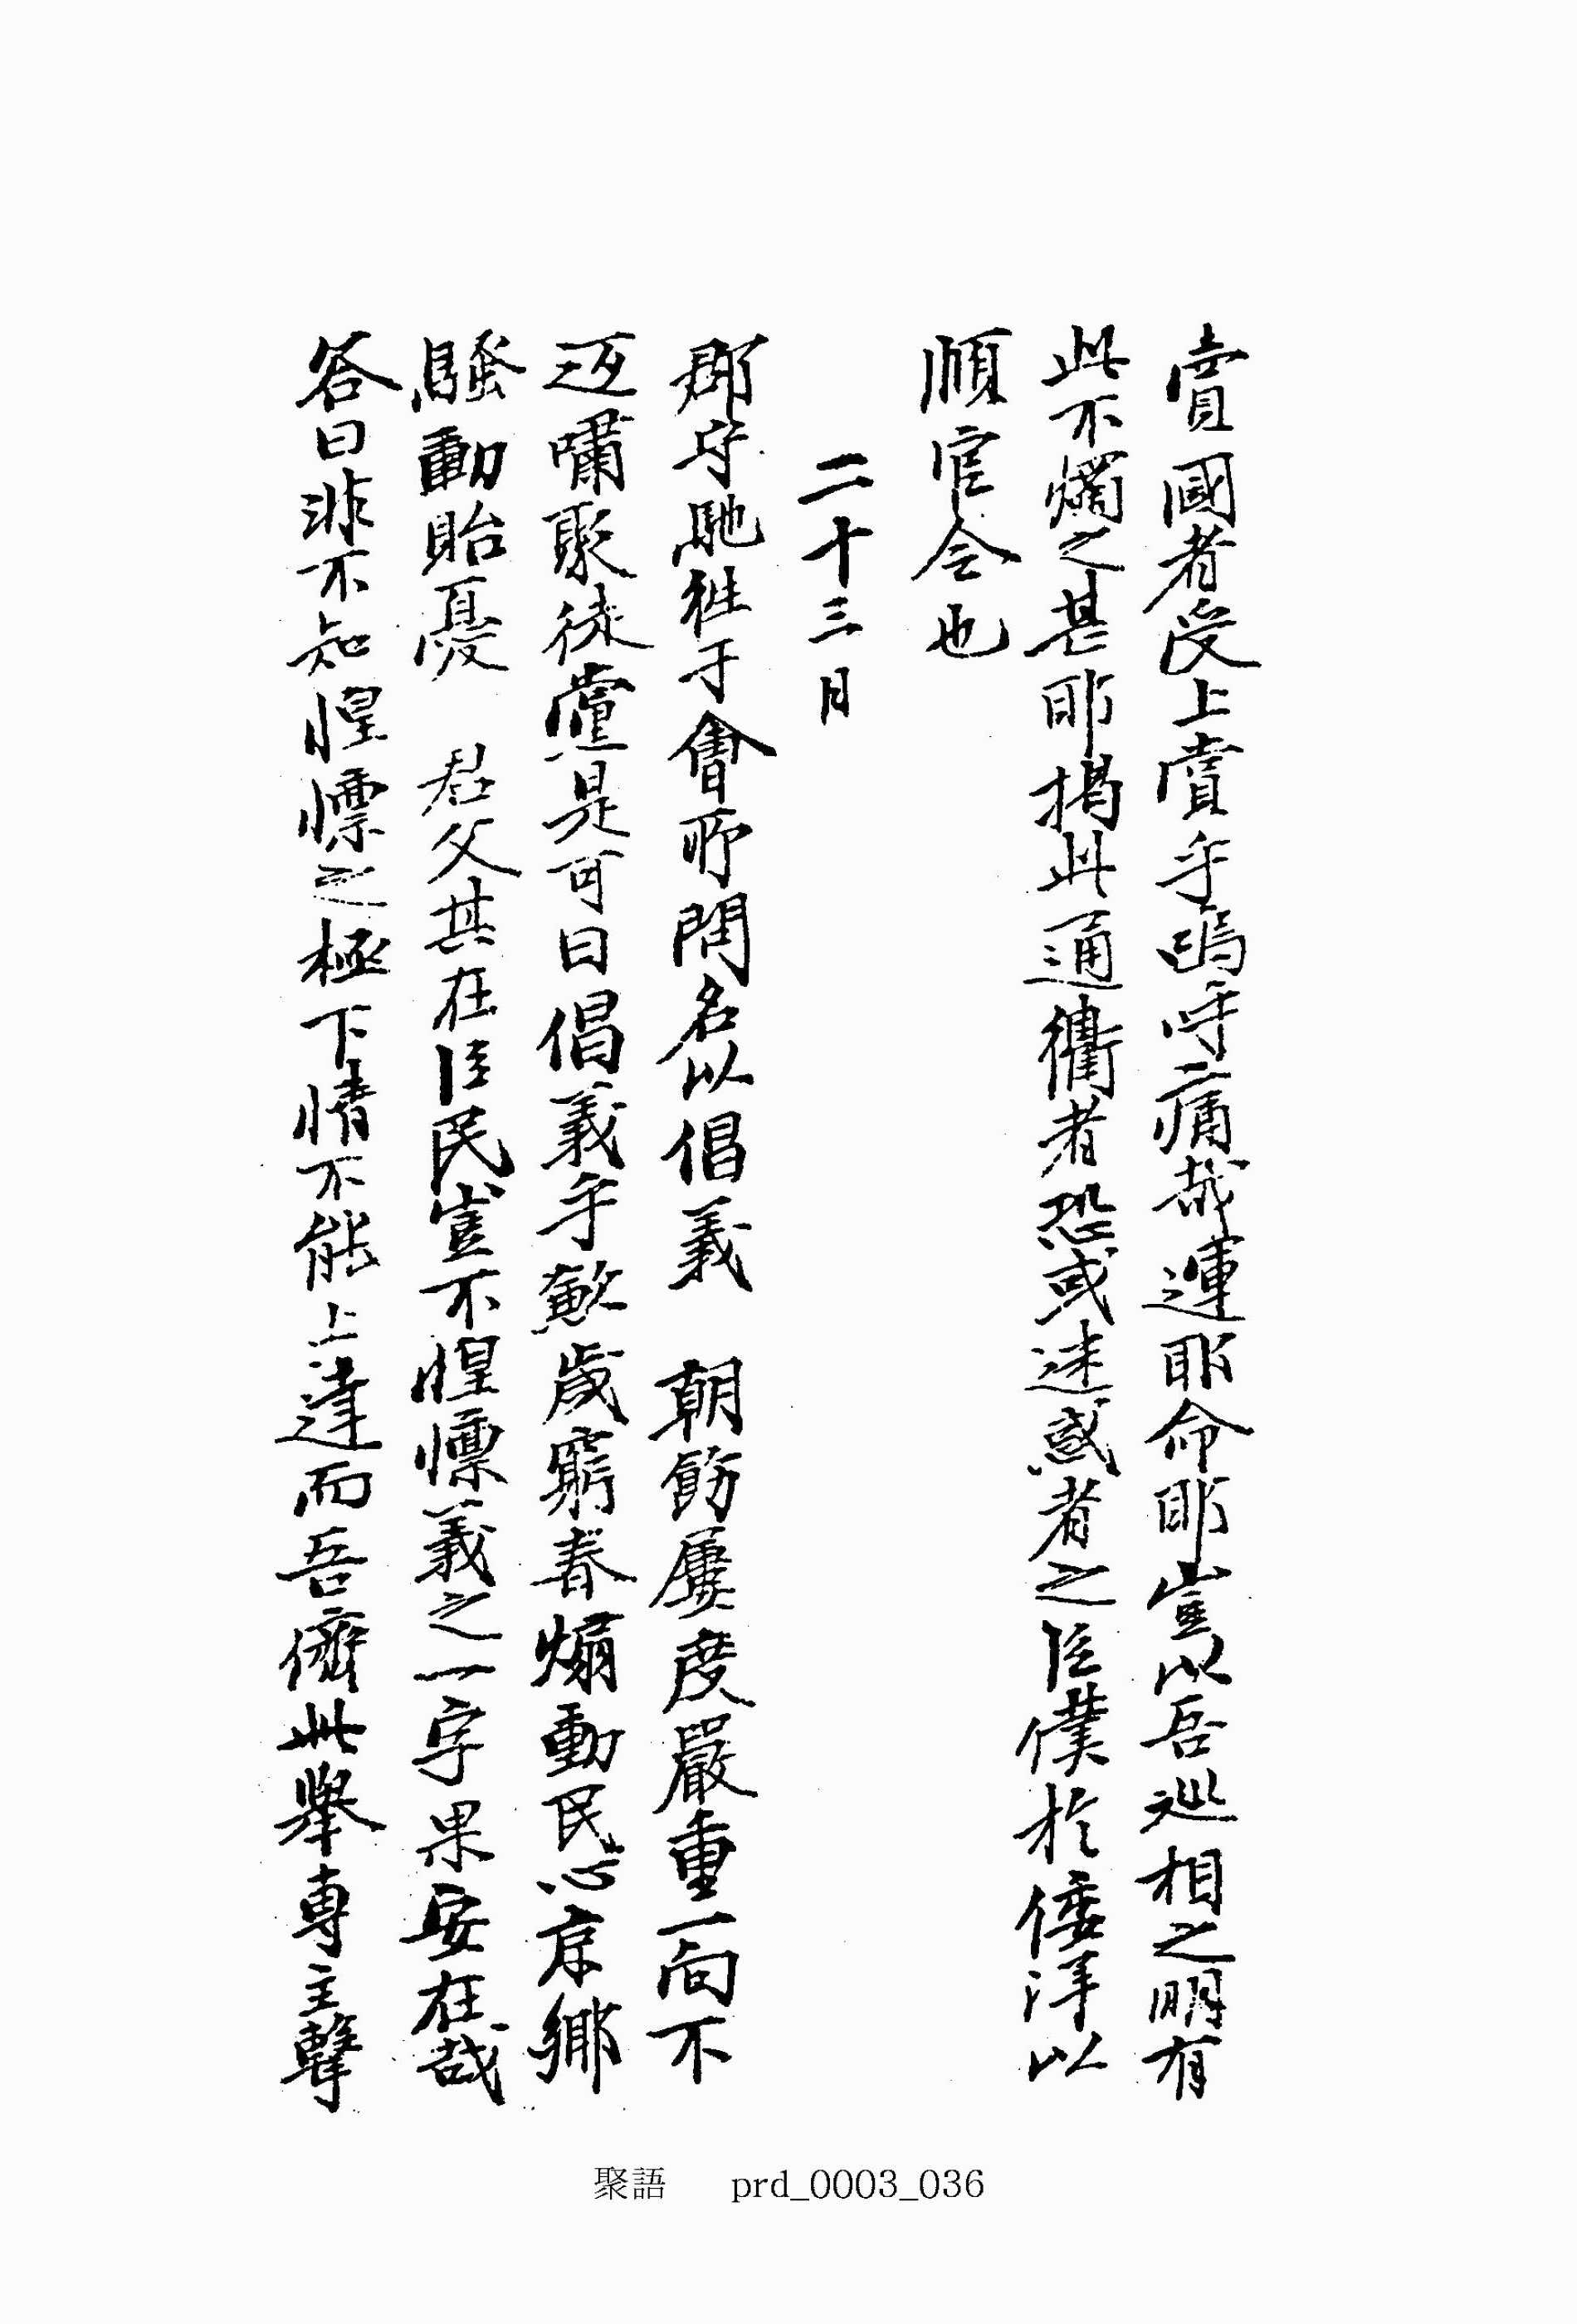 賣國者受上賞乎嗚呼痛哉運耶命耶豈以吾巡相之明有
此不燭之甚耶揭此通衢者恐或迷惑者之臣僕於倭洋以
順官令也
二十三日
郡守馳往于會所問名以倡義 朝飭屢度嚴重一向不
返嘯聚徒黨是可曰倡義乎歉歲窮春煽動民心京鄉
騷動貽憂 君父其在臣民豈不惶慄義之一字果安在哉
答曰非不知惶慄之極下情不能上達而吾儕此擧專主聲
聚語 prd_0003_036